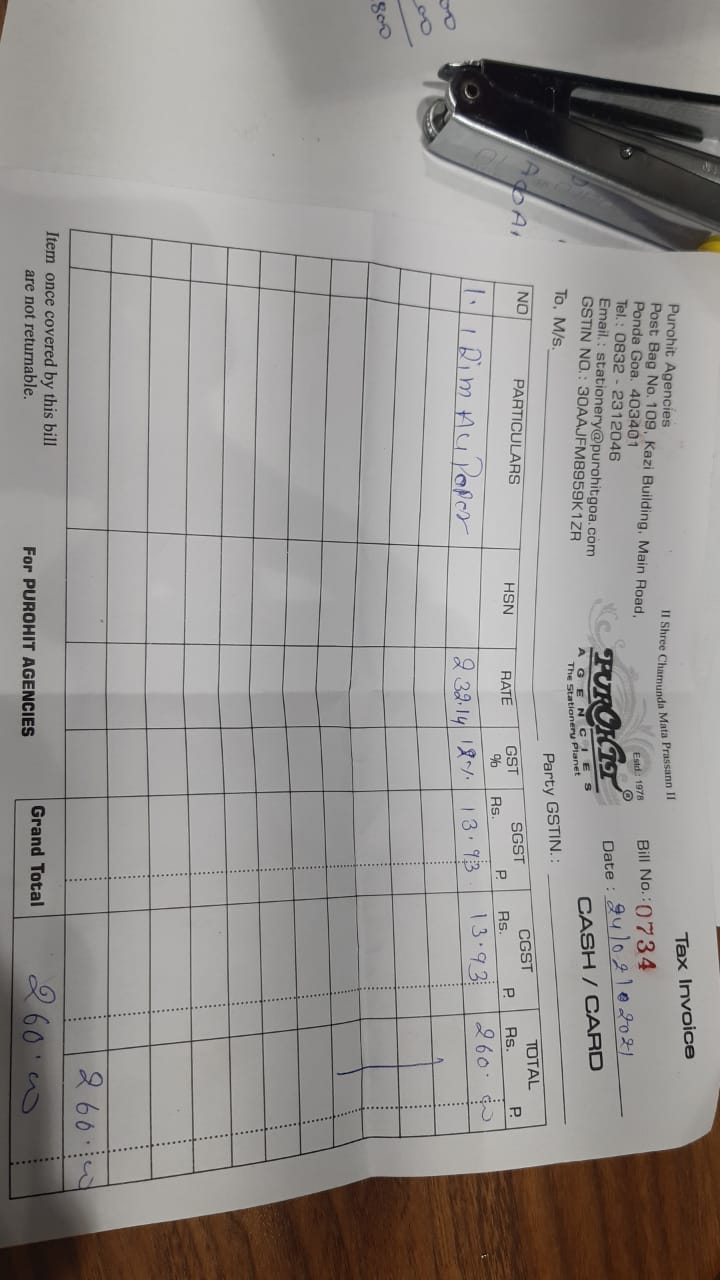 II Shree Chamunda Mata Prassann II
Tax Invoice
Purohit Agencies
Post Bag No. 109, Kazi Building, Main Road,
Ponda Goa. 403401
Tel.: 0832 - 2312046
Email.: stationery@purohitgoa.com
GSTIN NO.: 30AAJFM8959K1ZR
Estd.: 1978
PUROHIT ®
AGENCIES
The Stationery Planet
Bill No.: 0734
Date : 24/02/2021
CASH / CARD
To, M/s. Party GSTIN.:
NO PARTICULARS HSN RATE GST % SGST Rs. P. CGST Rs. P. TOTAL Rs. P.
1. 1 Rim A4 Paper 232.14 12% 13.93 13.93 260.00
260.00
Item once covered by this bill
are not returnable.
For PUROHIT AGENCIES
Grand Total 260.00
800